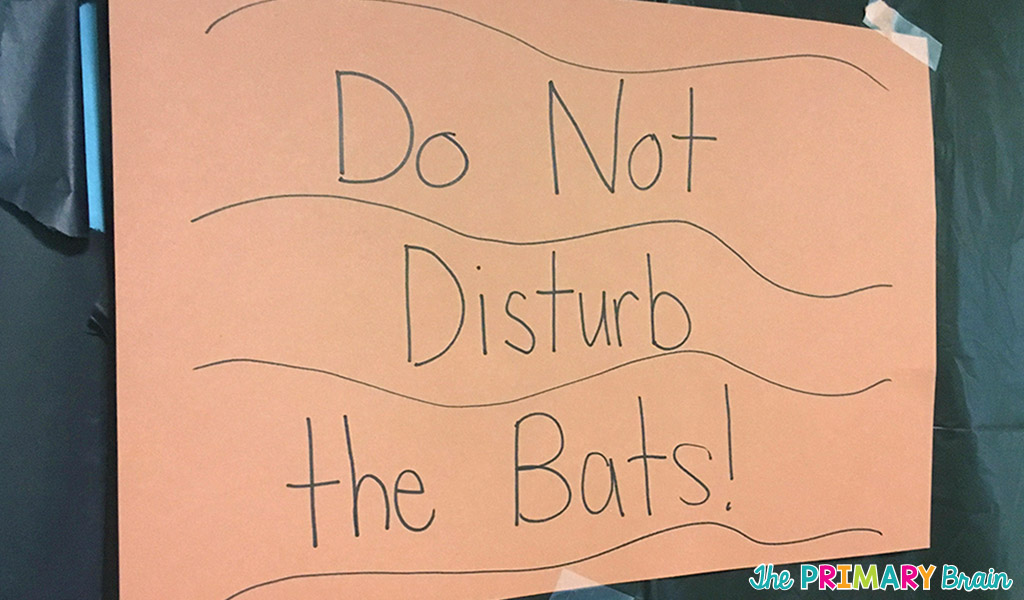 Do Not
Disturb
the Bats!
The PRIMARY Brain